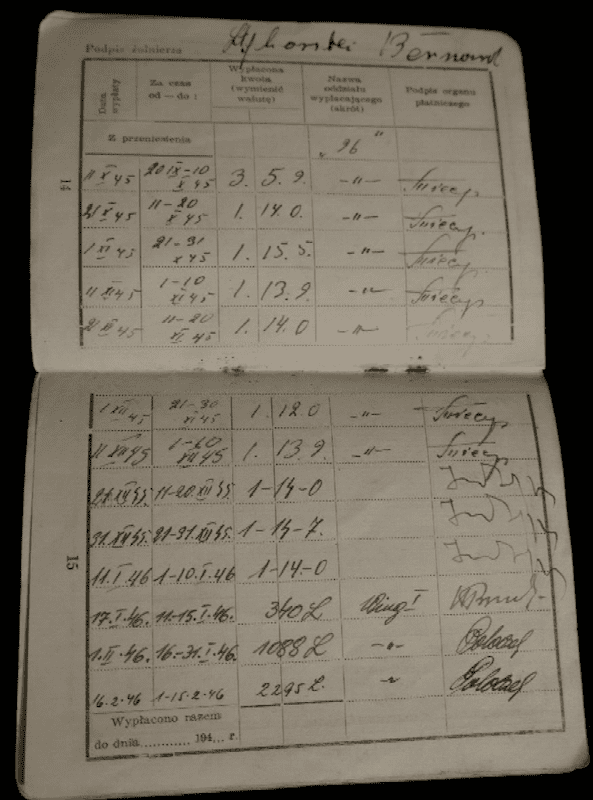 Podpis żołnierza Bernard
Data wypłaty Za czas od — do : Wypłacona kwota (wymienić walutę) Nazwa oddziału wypłacającego (skrót) Podpis organu płatniczego
Z przeniesienia „96"
11 X 45 20 IX-10 X 45 3. 5. 9. -"-
21 X 45 11-20 X 45 1. 14. 0. -"-
1 XI 45 21-31 X 45 1. 15. 5. -"-
11 XI 45 1-10 XI 45 1. 13. 9 -"-
21 XI 45 11-20 XI 45 1. 14. 0 -"-
14
1 XII 45 21-30 XI 45 1. 12. 0 -"-
11 XII 45 1-10 XII 45 1. 13. 9. -"-
21.XII 45. 11-20.XII 45. 1-14-0
31.XII 45. 21-31.XII 45. 1-14-7.
11.I.46 1-10.I.46 1-14-0
17.I.46. 11-15.I.46. 340 £ Wing I
1.II.46. 16-31.I.46. 1088 £ -"-
16.2.46 1-15.2.46 2295 £. -"-
15
Wypłacono razem
do dnia............ 194... r.